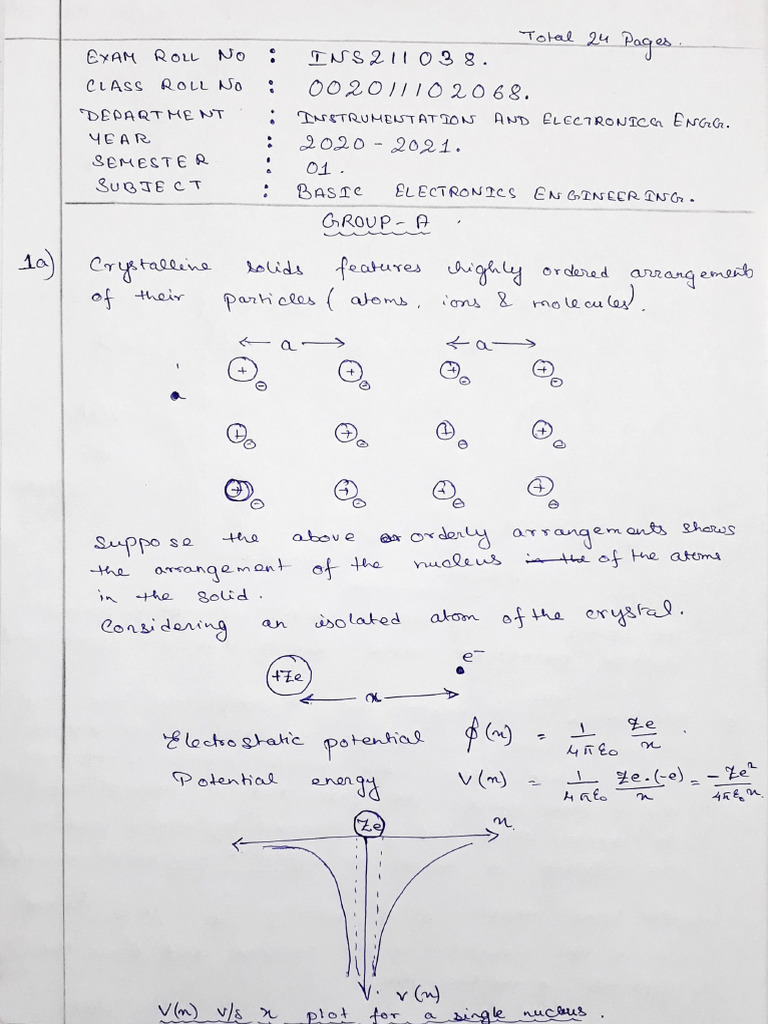 Total 24 Pages.
EXAM ROLL NO : INS211038.
CLASS ROLL NO : 002011102068.
DEPARTMENT : INSTRUMENTATION AND ELECTRONICS ENGG.
YEAR : 2020-2021.
SEMESTER : 01.
SUBJECT : BASIC ELECTRONICS ENGINEERING.
GROUP-A
1a) Crystalline solids features highly ordered arrangement
of their particles (atoms, ions & molecules).
a a
+ - + - + - + -
a
+ - + - + - + -
+ - + - + - + -
Suppose the above or orderly arrangements shows
the arrangement of the nucleus in the of the atoms
in the solid.
Considering an isolated atom of the crystal.
+Ze e⁻
x
Electrostatic potential ϕ(x) = 1/4πε₀ Ze/x .
Potential energy V(x) = 1/4πε₀ Ze·(-e)/x = -Ze²/4πε₀x.
Ze x.
V(x)
V(x) v/s x plot for a single nucleus.